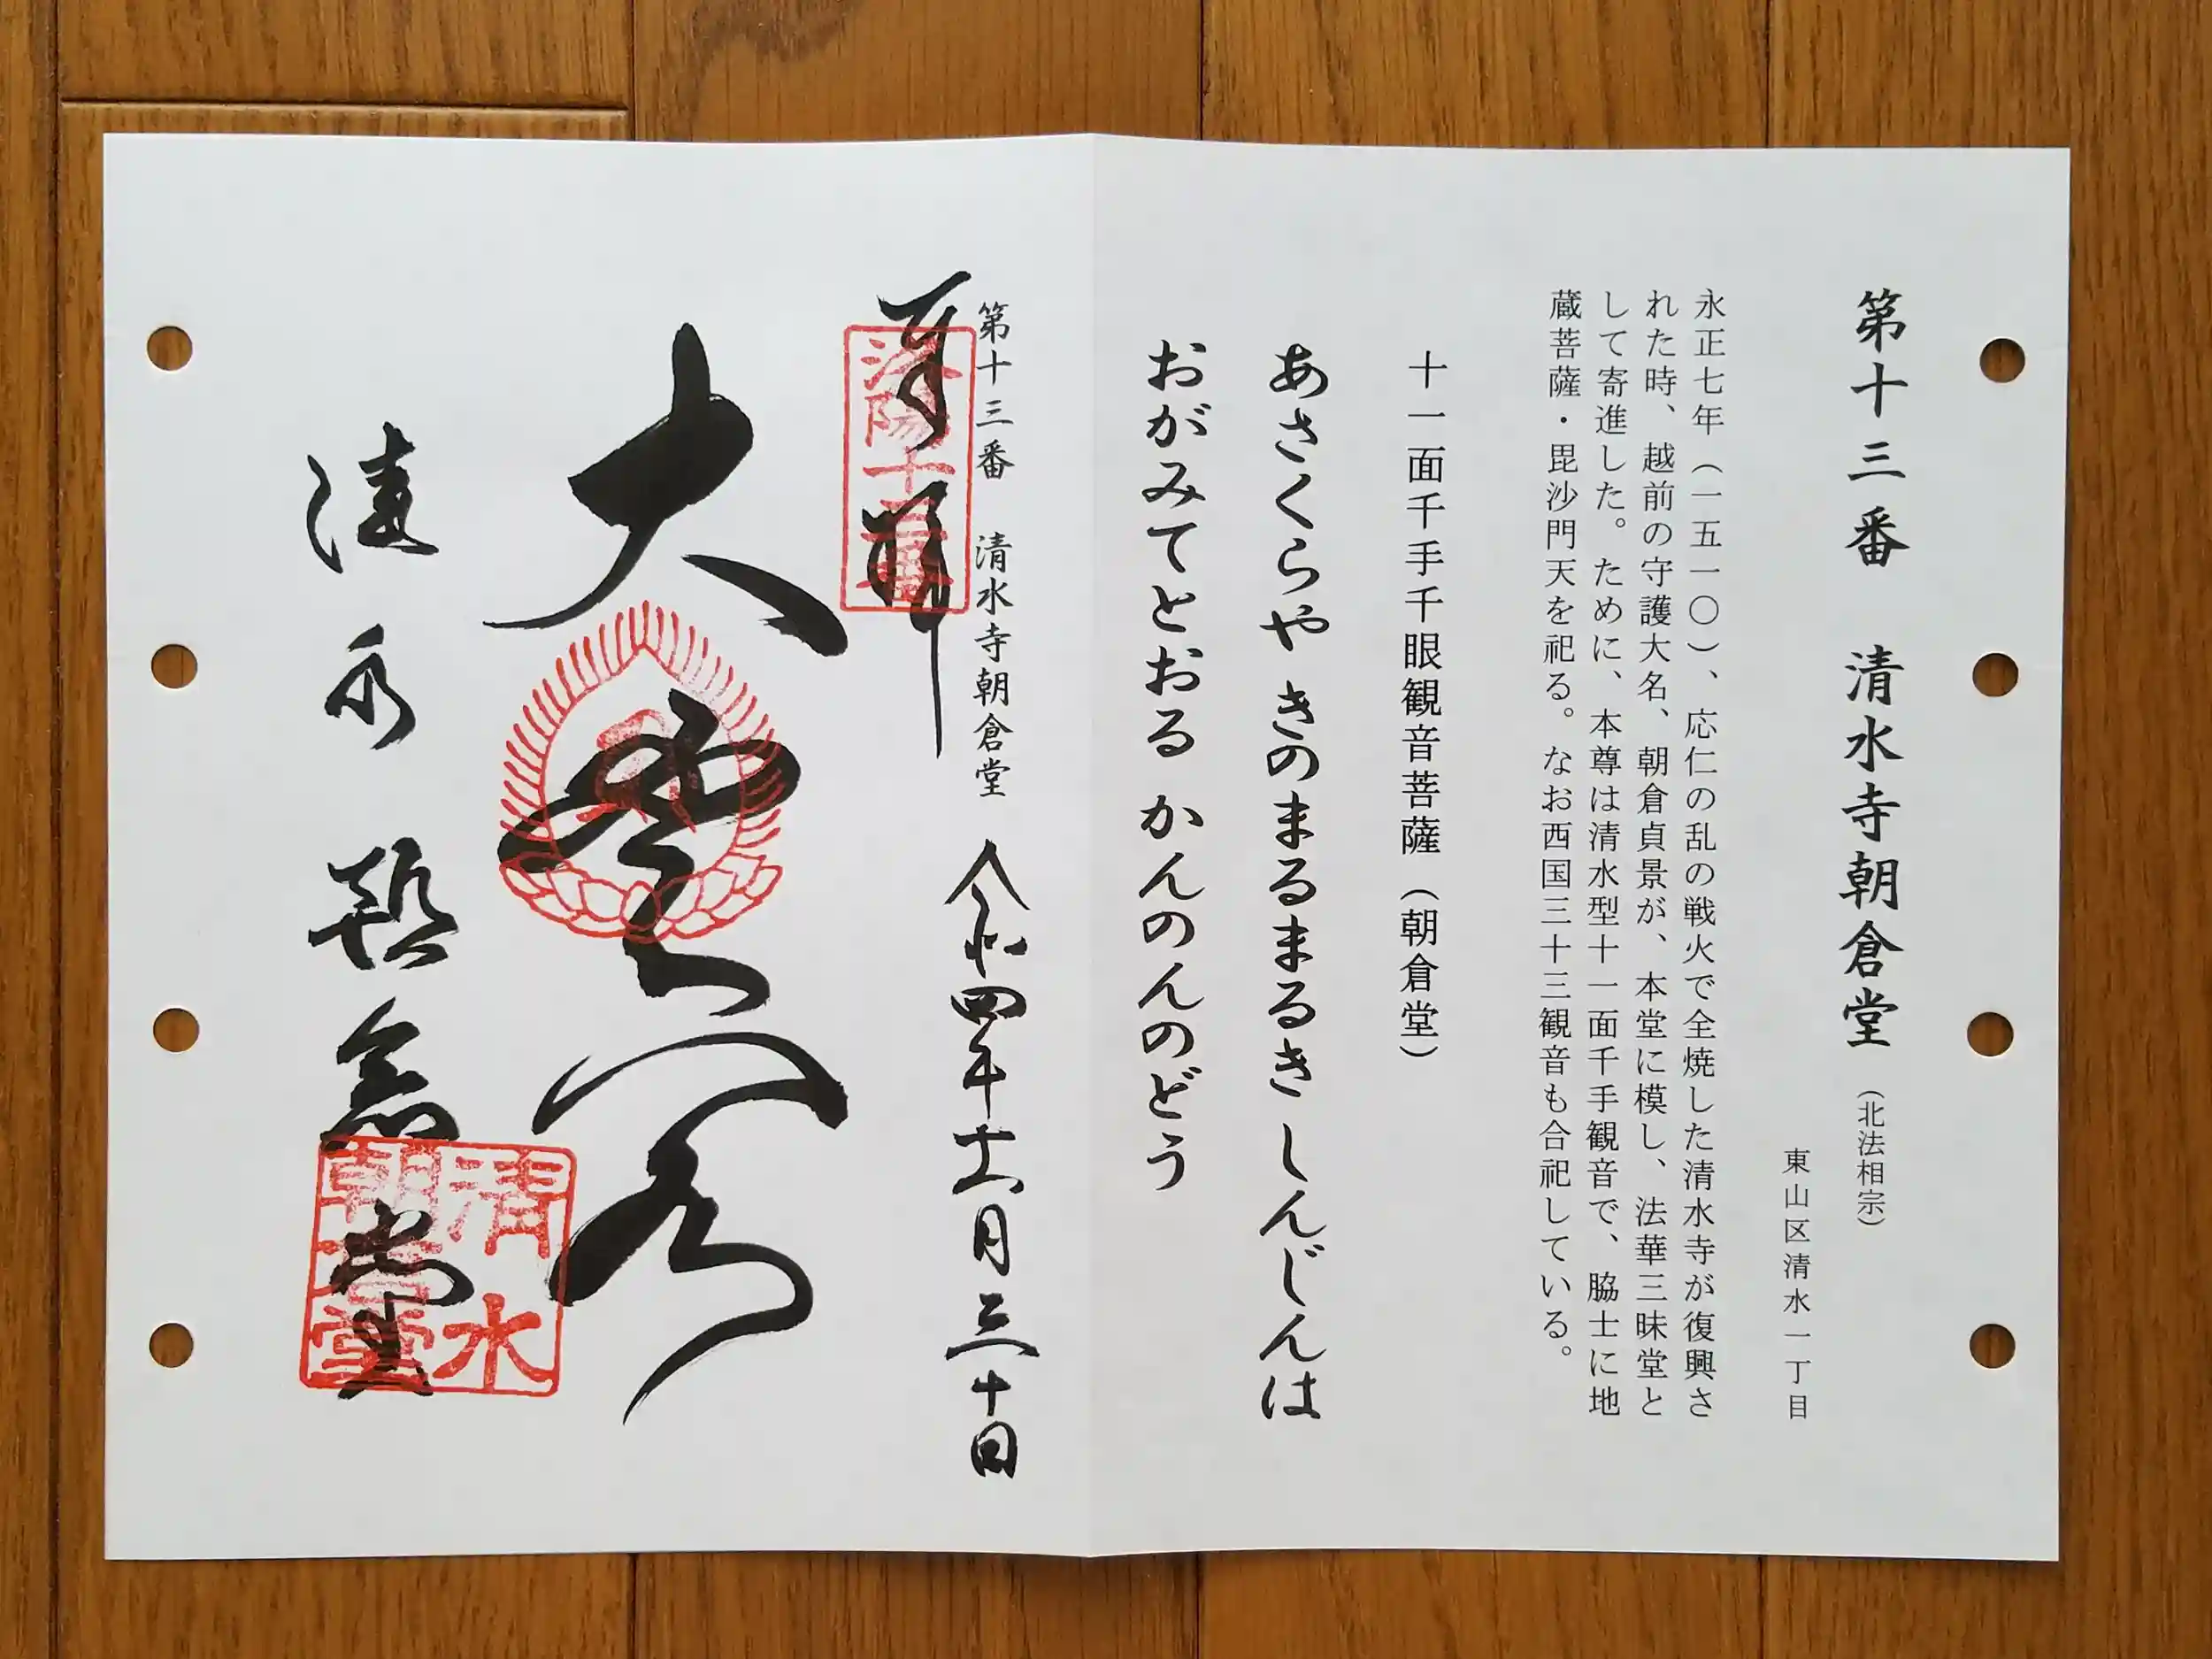 第十三番 清水寺朝倉堂（北法相宗）
東山区清水一丁目
永正七年（一五一〇）、応仁の乱の戦火で全焼した清水寺が復興さ
れた時、越前の守護大名、朝倉貞景が、本堂に模し、法華三昧堂と
して寄進した。ために、本尊は清水型十一面千手観音で、脇士に地
蔵菩薩・毘沙門天を祀る。なお西国三十三観音も合祀している。
十一面千手千眼観音菩薩（朝倉堂）
あさくらや きのまるまるき しんじんは
おがみてとおる かんのんのどう
第十三番 清水寺朝倉堂
令和四年十一月三十日
奉拝
洛陽十三番
大悲閣
清水朝倉堂
清水
朝倉堂